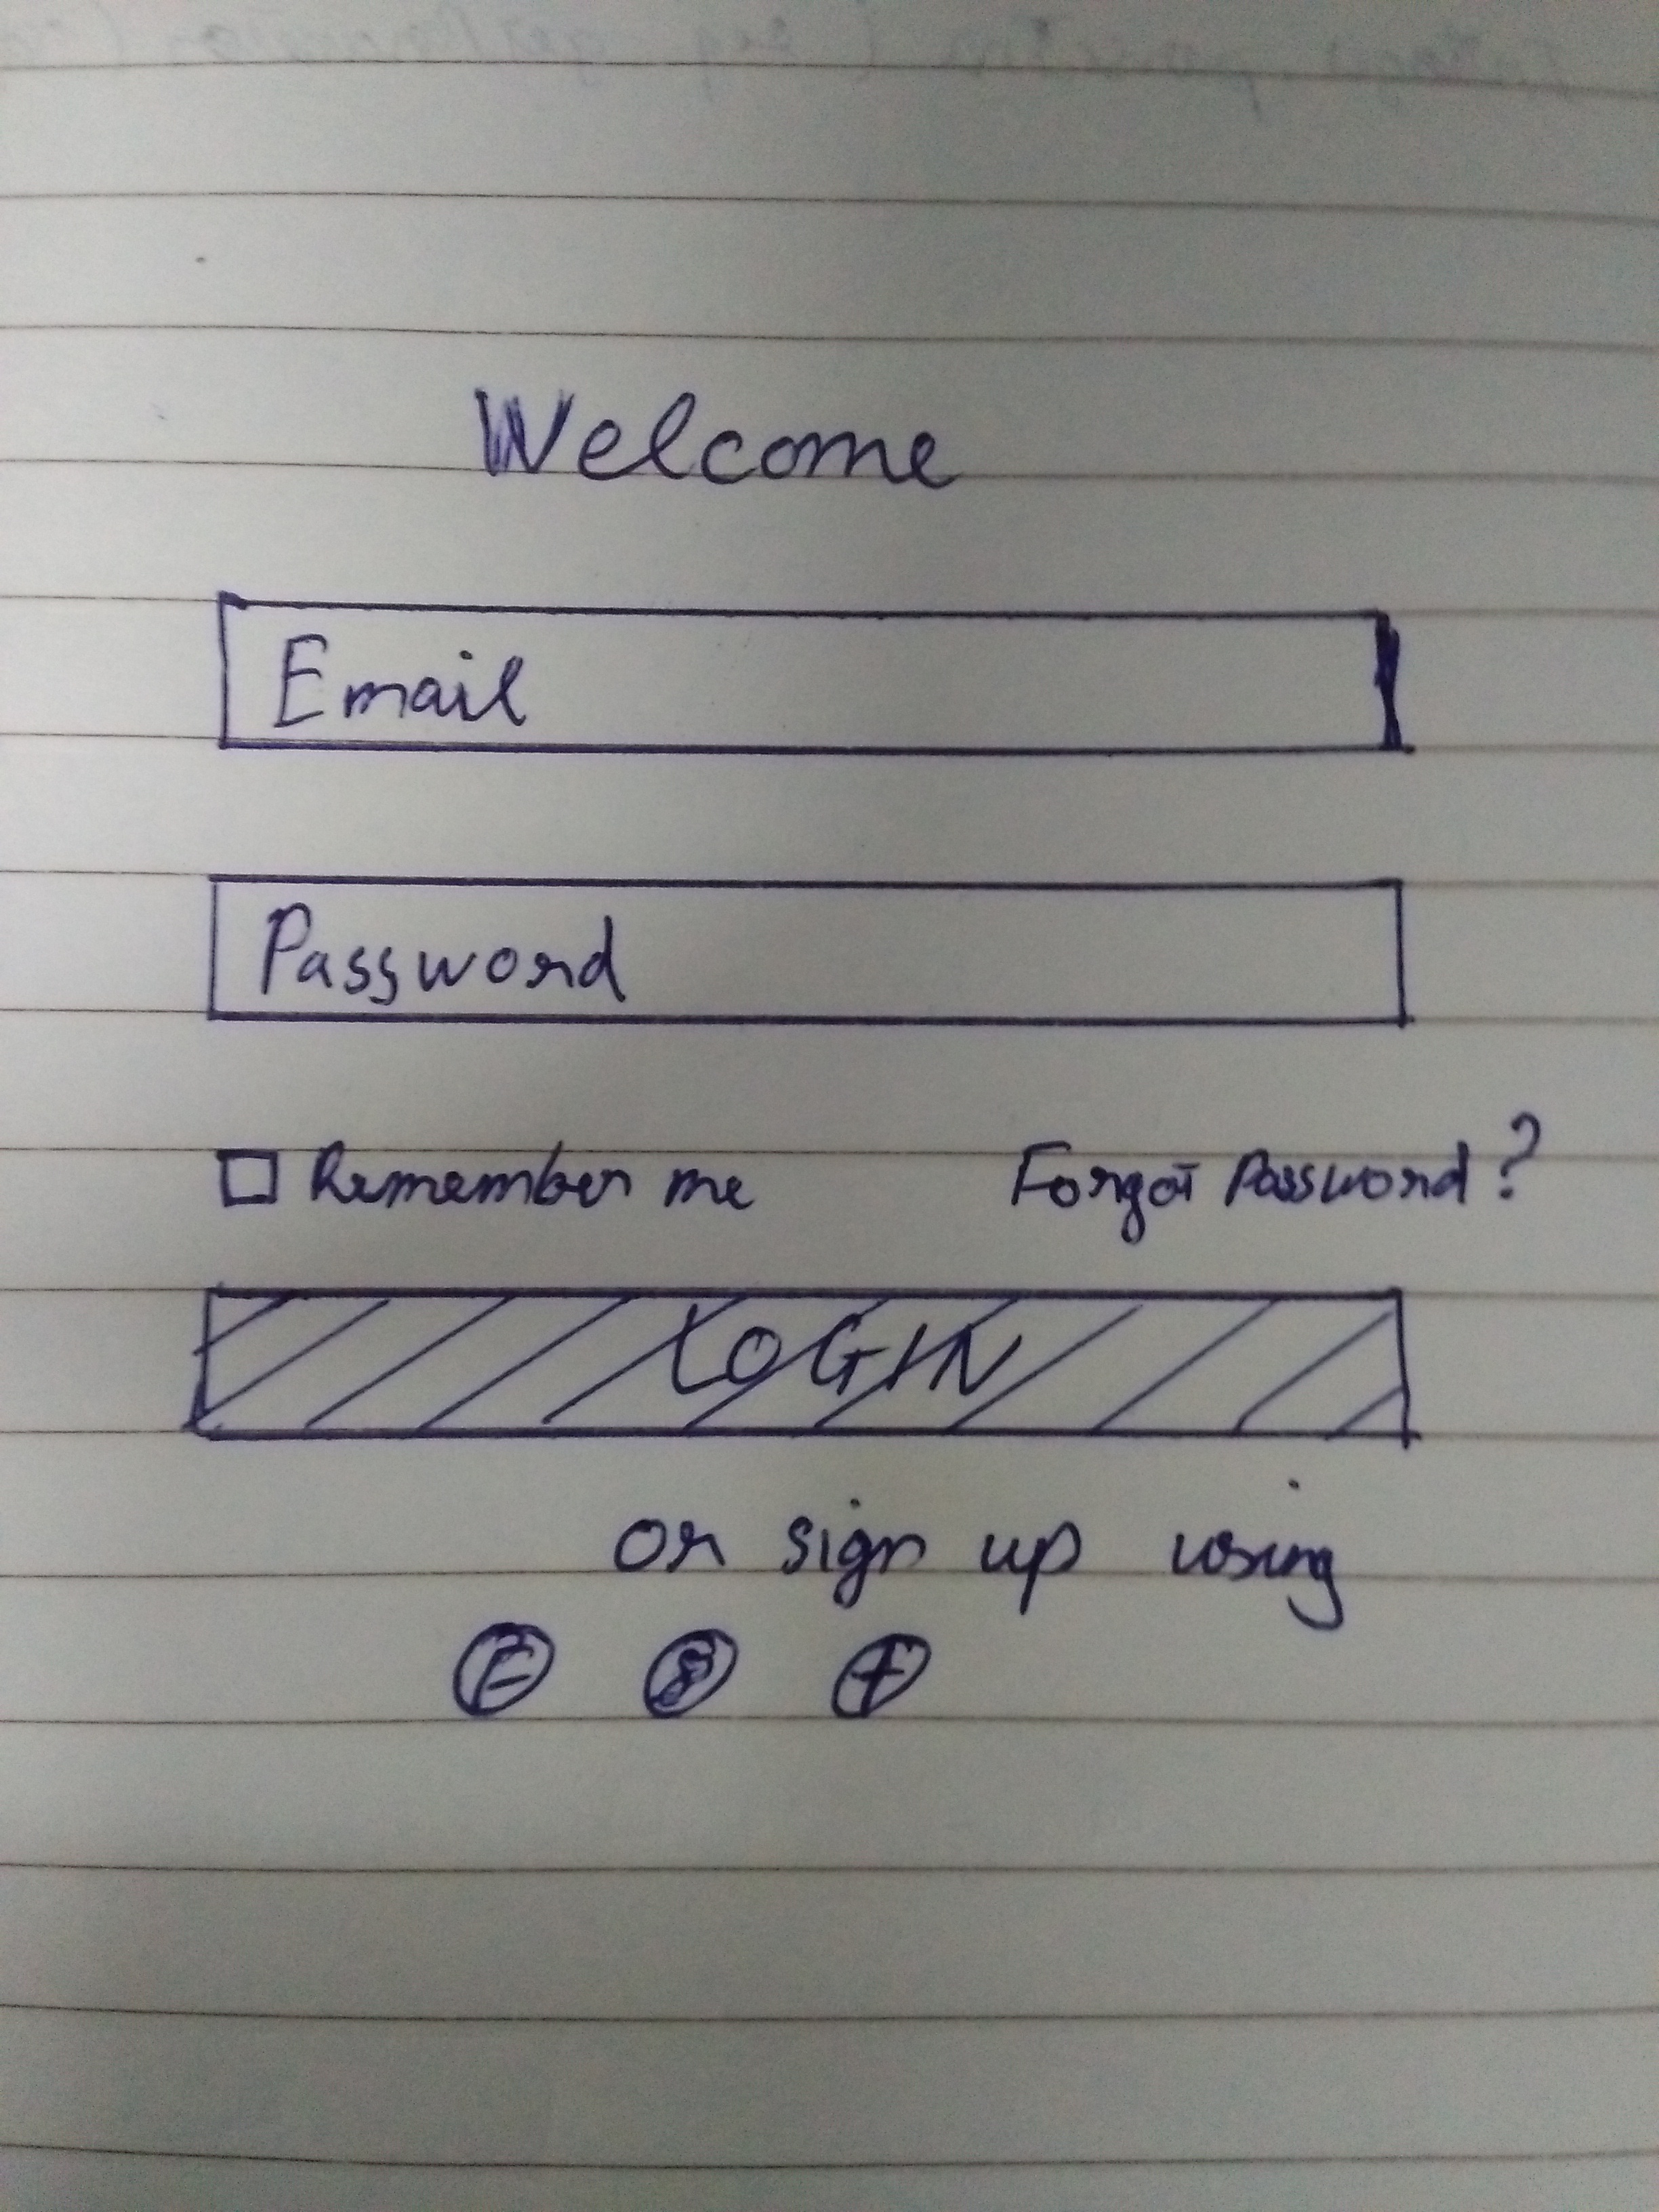 Welcome
Email
Password
Remember me Forgot Password?
LOGIN
or sign up using